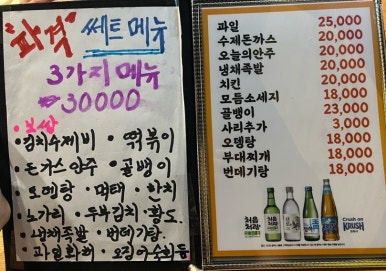 "파격" 쎄트 메뉴
3가지 메뉴
30000
보쌈
김치수제비 · 떡볶이
돈가스안주 · 골뱅이
오뎅탕 · 먹태 · 한치
노가리 · 두부김치 · 황도
냉채족발 · 번데기탕
과일화채 · 오징어숙회등
과일 25,000
수제돈까스 20,000
오늘의안주 20,000
냉채족발 20,000
치킨 20,000
모듬소세지 18,000
골뱅이 23,000
사리추가 3,000
오뎅탕 18,000
부대찌개 18,000
번데기탕 18,000
처음처럼
Crush on
KRUSH